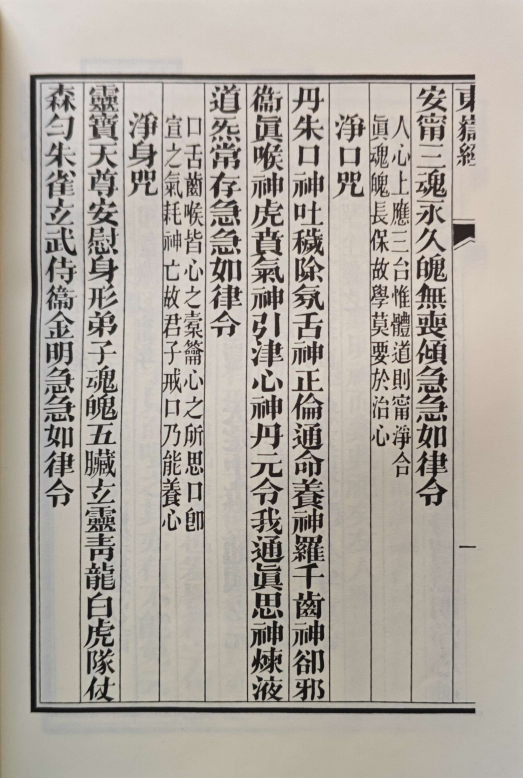 東嶽經
一
安甯三魂永久魄無喪傾急急如律令
人心上應三台惟體道則甯淨合
眞魂魄長保故學莫要於治心
淨口咒
丹朱口神吐穢除氛舌神正倫通命養神羅千齒神卻邪
衞眞喉神虎賁氣神引津心神丹元令我通眞思神煉液
道炁常存急急如律令
口舌齒喉皆心之橐籥心之所思口卽
宣之氣耗神亡故君子戒口乃能養心
淨身咒
靈寶天尊安慰身形弟子魂魄五臟玄靈靑龍白虎隊仗
森匀朱雀玄武侍衞金明急急如律令